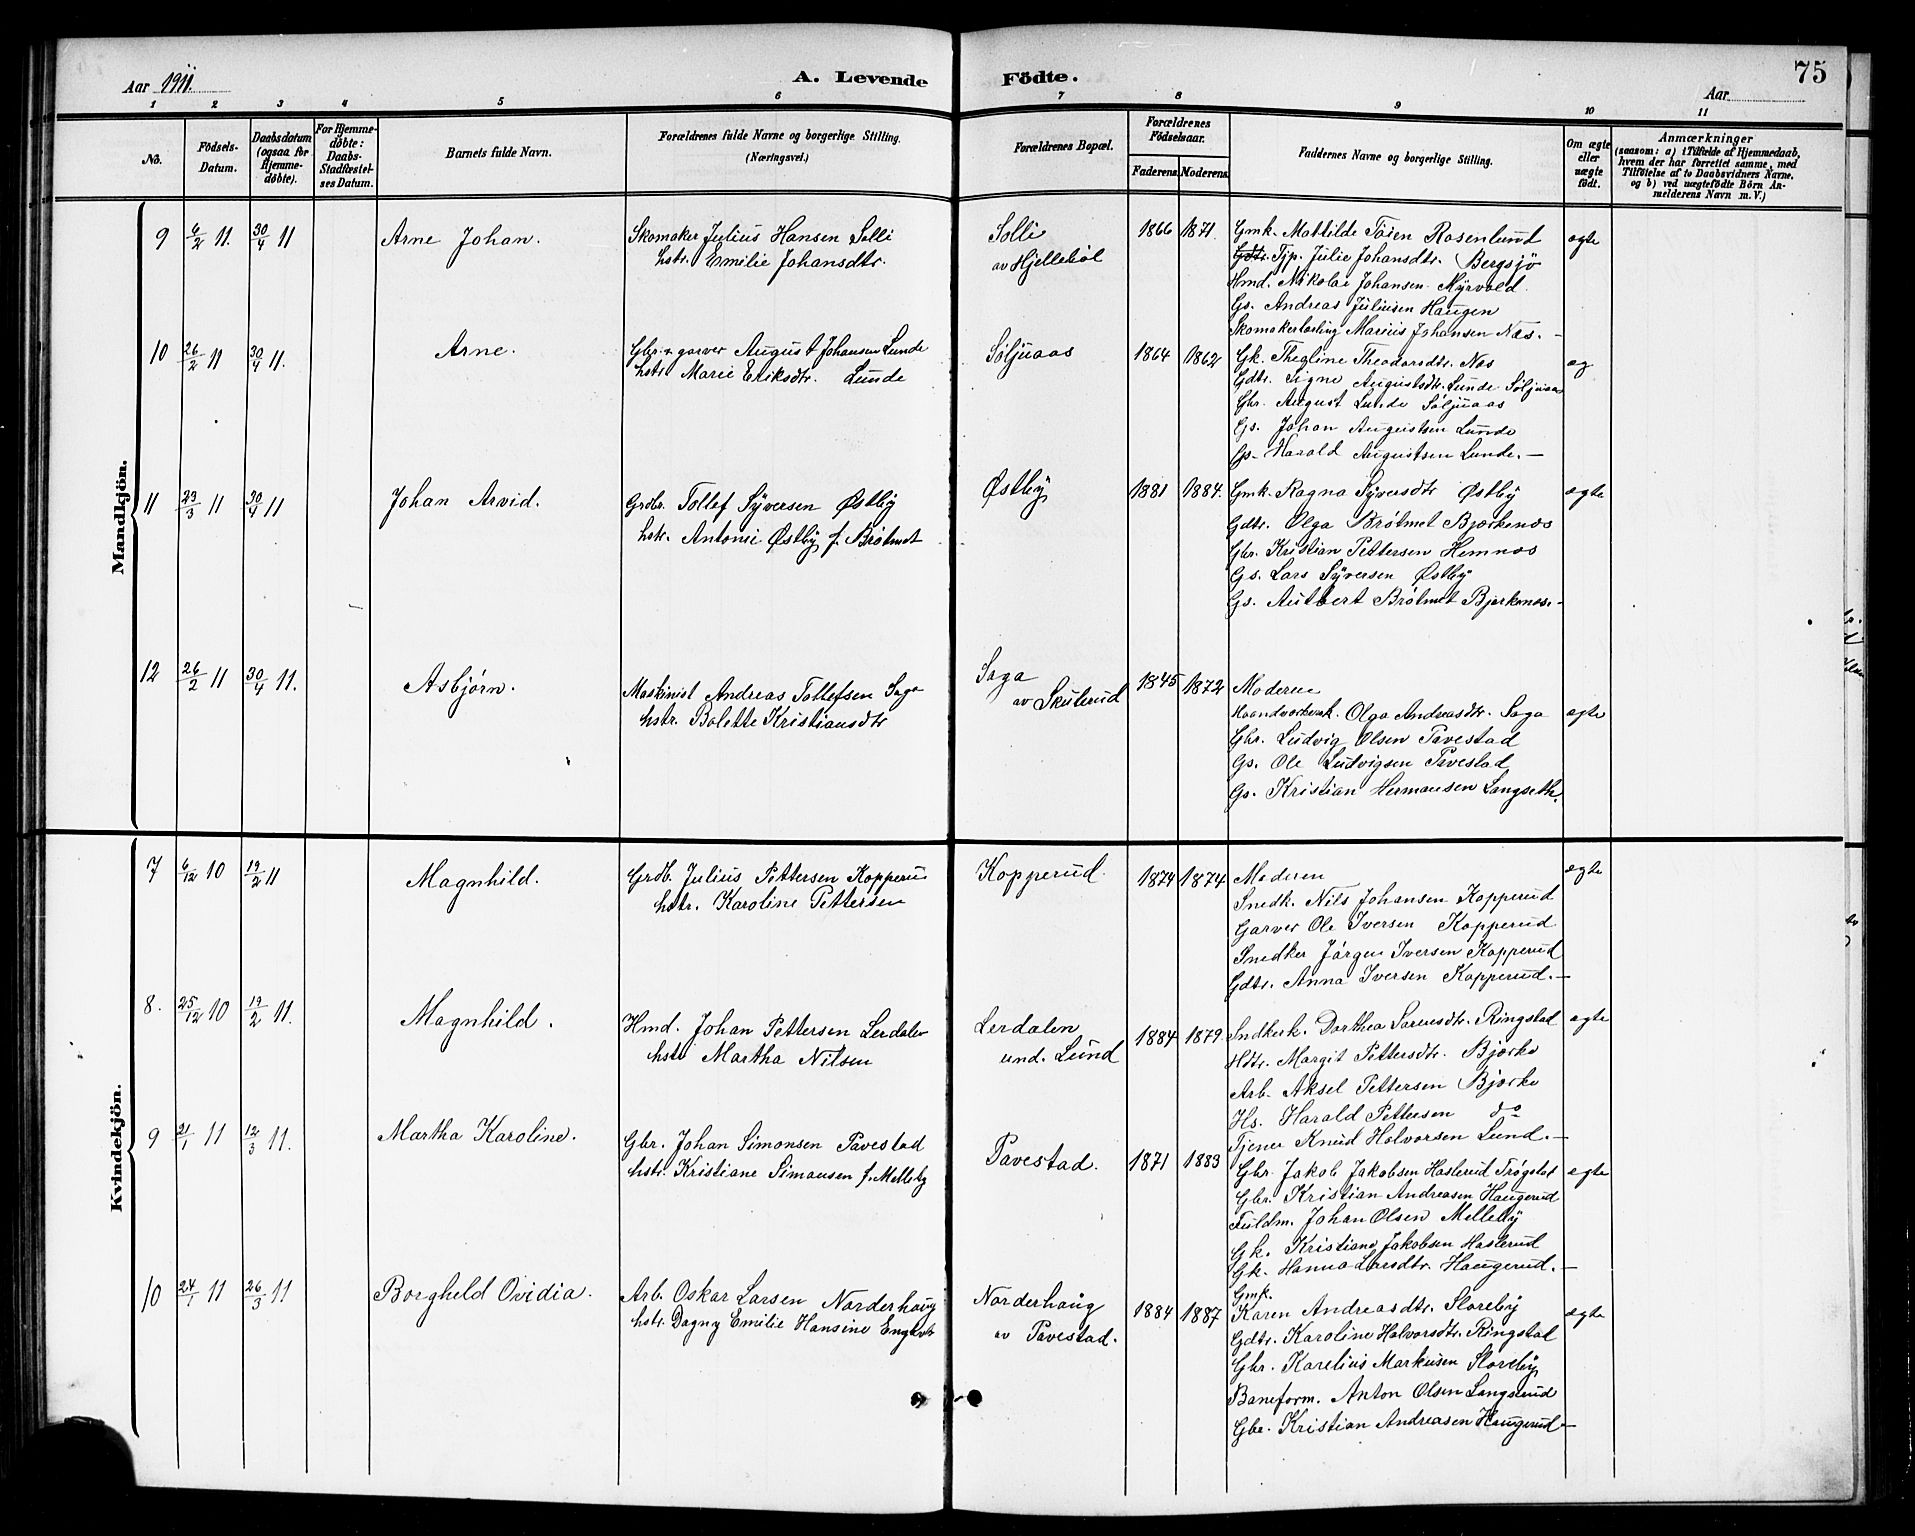 Aar 1911.
A. Levende Födte.
75
Aar
1 2 3 4 5 6 7 8 9 10 11
No.
Födsels-Datum.
Daabsdatum (ogsaa for Hjemme-döbte).
For Hjemme-döbte: Daabs-Stadfæstel-ses Datum.
Barnets fulde Navn.
Forældrenes fulde Navne og borgerlige Stilling. (Næringsvei.)
Forældrenes Bopæl.
Forældrenes Födselsaar.
Faderens. Moderens.
Faddernes Navne og borgerlige Stilling.
Om ægte eller uægte født.
Anmærkninger
(saasom: a) i Tilfælde af Hjemmedaab,
hvem der har forrettet samme, med
Tilföielse af to Daabsvidners Navne,
og b) ved uægtefödte Börn An-
melderens Navn m. V.)
Mandkjön.
9 6/2 11. 30/4 11 Arne Johan.
Skomaker Julius Hansen Solli
hstr. Emilie Johansdtr.
Solli
av Hjellebøl
1866 1871.
Gmk. Mathilde Tøien Rosenlund
Tjp. Julie Johansdtr. Bergsjø
Hmd. Nikolai Johansen Myrvold
Gs. Andreas Juliusen Haugen
Skomakerlærling Marius Johansen Næs. -
ægte
10 26/2 11 30/4 11. Arne.
Gbr. & garver August Johansen Lunde
hstr Marie Eriksdtr. Lunde
Søljuaas
1864 1862
Gk. Thegline Theodorsdtr. Næs
Gdtr. Signe Augustsdtr. Lunde Søljuaas
Gbr. August Lunde Søljuaas
Gs. Johan Augustsen Lunde
Gs. Harald Augustsen Lunde. -
æg
11 23/3 11 30/4 11 Johan Arvid.
Grdbr. Tollef Syversen Østby
hstr. Antonie Østby f. Brøtmet
Østby
1881 1884.
Gmk. Ragna Syversdtr Østby
Gdtr. Olga Brøtmet Bjerkenæs
Gbr. Kristian Pettersen Hemnæs
Gs. Lars Syversen Østby
Gs. Autbert Brøtmet Bjerkenæs. -
ægte
12 26/2 11 30/4 11. Asbjørn.
Maskinist Andreas Tollefsen Saga
hstr. Bolette Kristiansdtr
Saga
av Skulerud
1845 1872
Moderen
Haandverkersk. Olga Andreasdtr. Saga
Gbr. Ludvig Olsen Pavestad
Gs. Ole Ludvigsen Pavestad
Gs. Kristian Hermansen Langseth.
ægte
Kvindekjön.
7 6/12 10 19/2 11 Magnhild.
Grdb. Julius Pettersen Kopperu
hstr. Karoline Pettersen
Kopperud
1874 1874
Moderen
Snedk. Nils Johansen Kopperud
Garver Ole Iversen Kopperud
Snedker Jørgen Iversen Kopperud
Gdtr. Anna Iversen Kopperud. -
ægte
8. 25/12 10 19/2 11. Magnhild.
Hmd. Johan Pettersen Lerdalen
hstr Martha Nilsen
Lerdalen
und. Lund
1884 1879
Sndkerk. Dorthea Sørensdtr. Ringstad
Hdtr. Margit Pettersdtr. Bjørke
Arb. Aksel Pettersen Bjørke
Hs. Harald Pettersen do
Tjener Knud Halvorsen Lund. -
ægte
9 21/1 11 12/3 11. Martha Karoline.
Gbr. Johan Simonsen Pavestad
hstr. Kristiane Simonsen f. Melleby
Pavestad.
1871 1883
Gbr. Jakob Jakobsen Haslerud Trøgstad
Gbr. Kristian Andreasen Haugerud
Fuldm. Johan Olsen Melleby
Gk. Kristiane Jakobsen Haslerud
Gk. Hanna Larsdtr. Haugerud. -
ægte
10 24/1 11 26/3 11 Borghild Ovidia.
Arb. Oskar Larsen Norderhaug
hstr. Dagny Emilie Hansine Engebr
Norderhaug
av Pavestad.
1884 1887
Gmk.
Karen Andreasdtr. Storeby
Gdtr. Karoline Halvorsdtr. Ringstad
Gbr. Karelius Markusen Storeby
Baneform. Anton Olsen Langsrud
Gbr. Kristian Andreasen Haugerud -
ægte